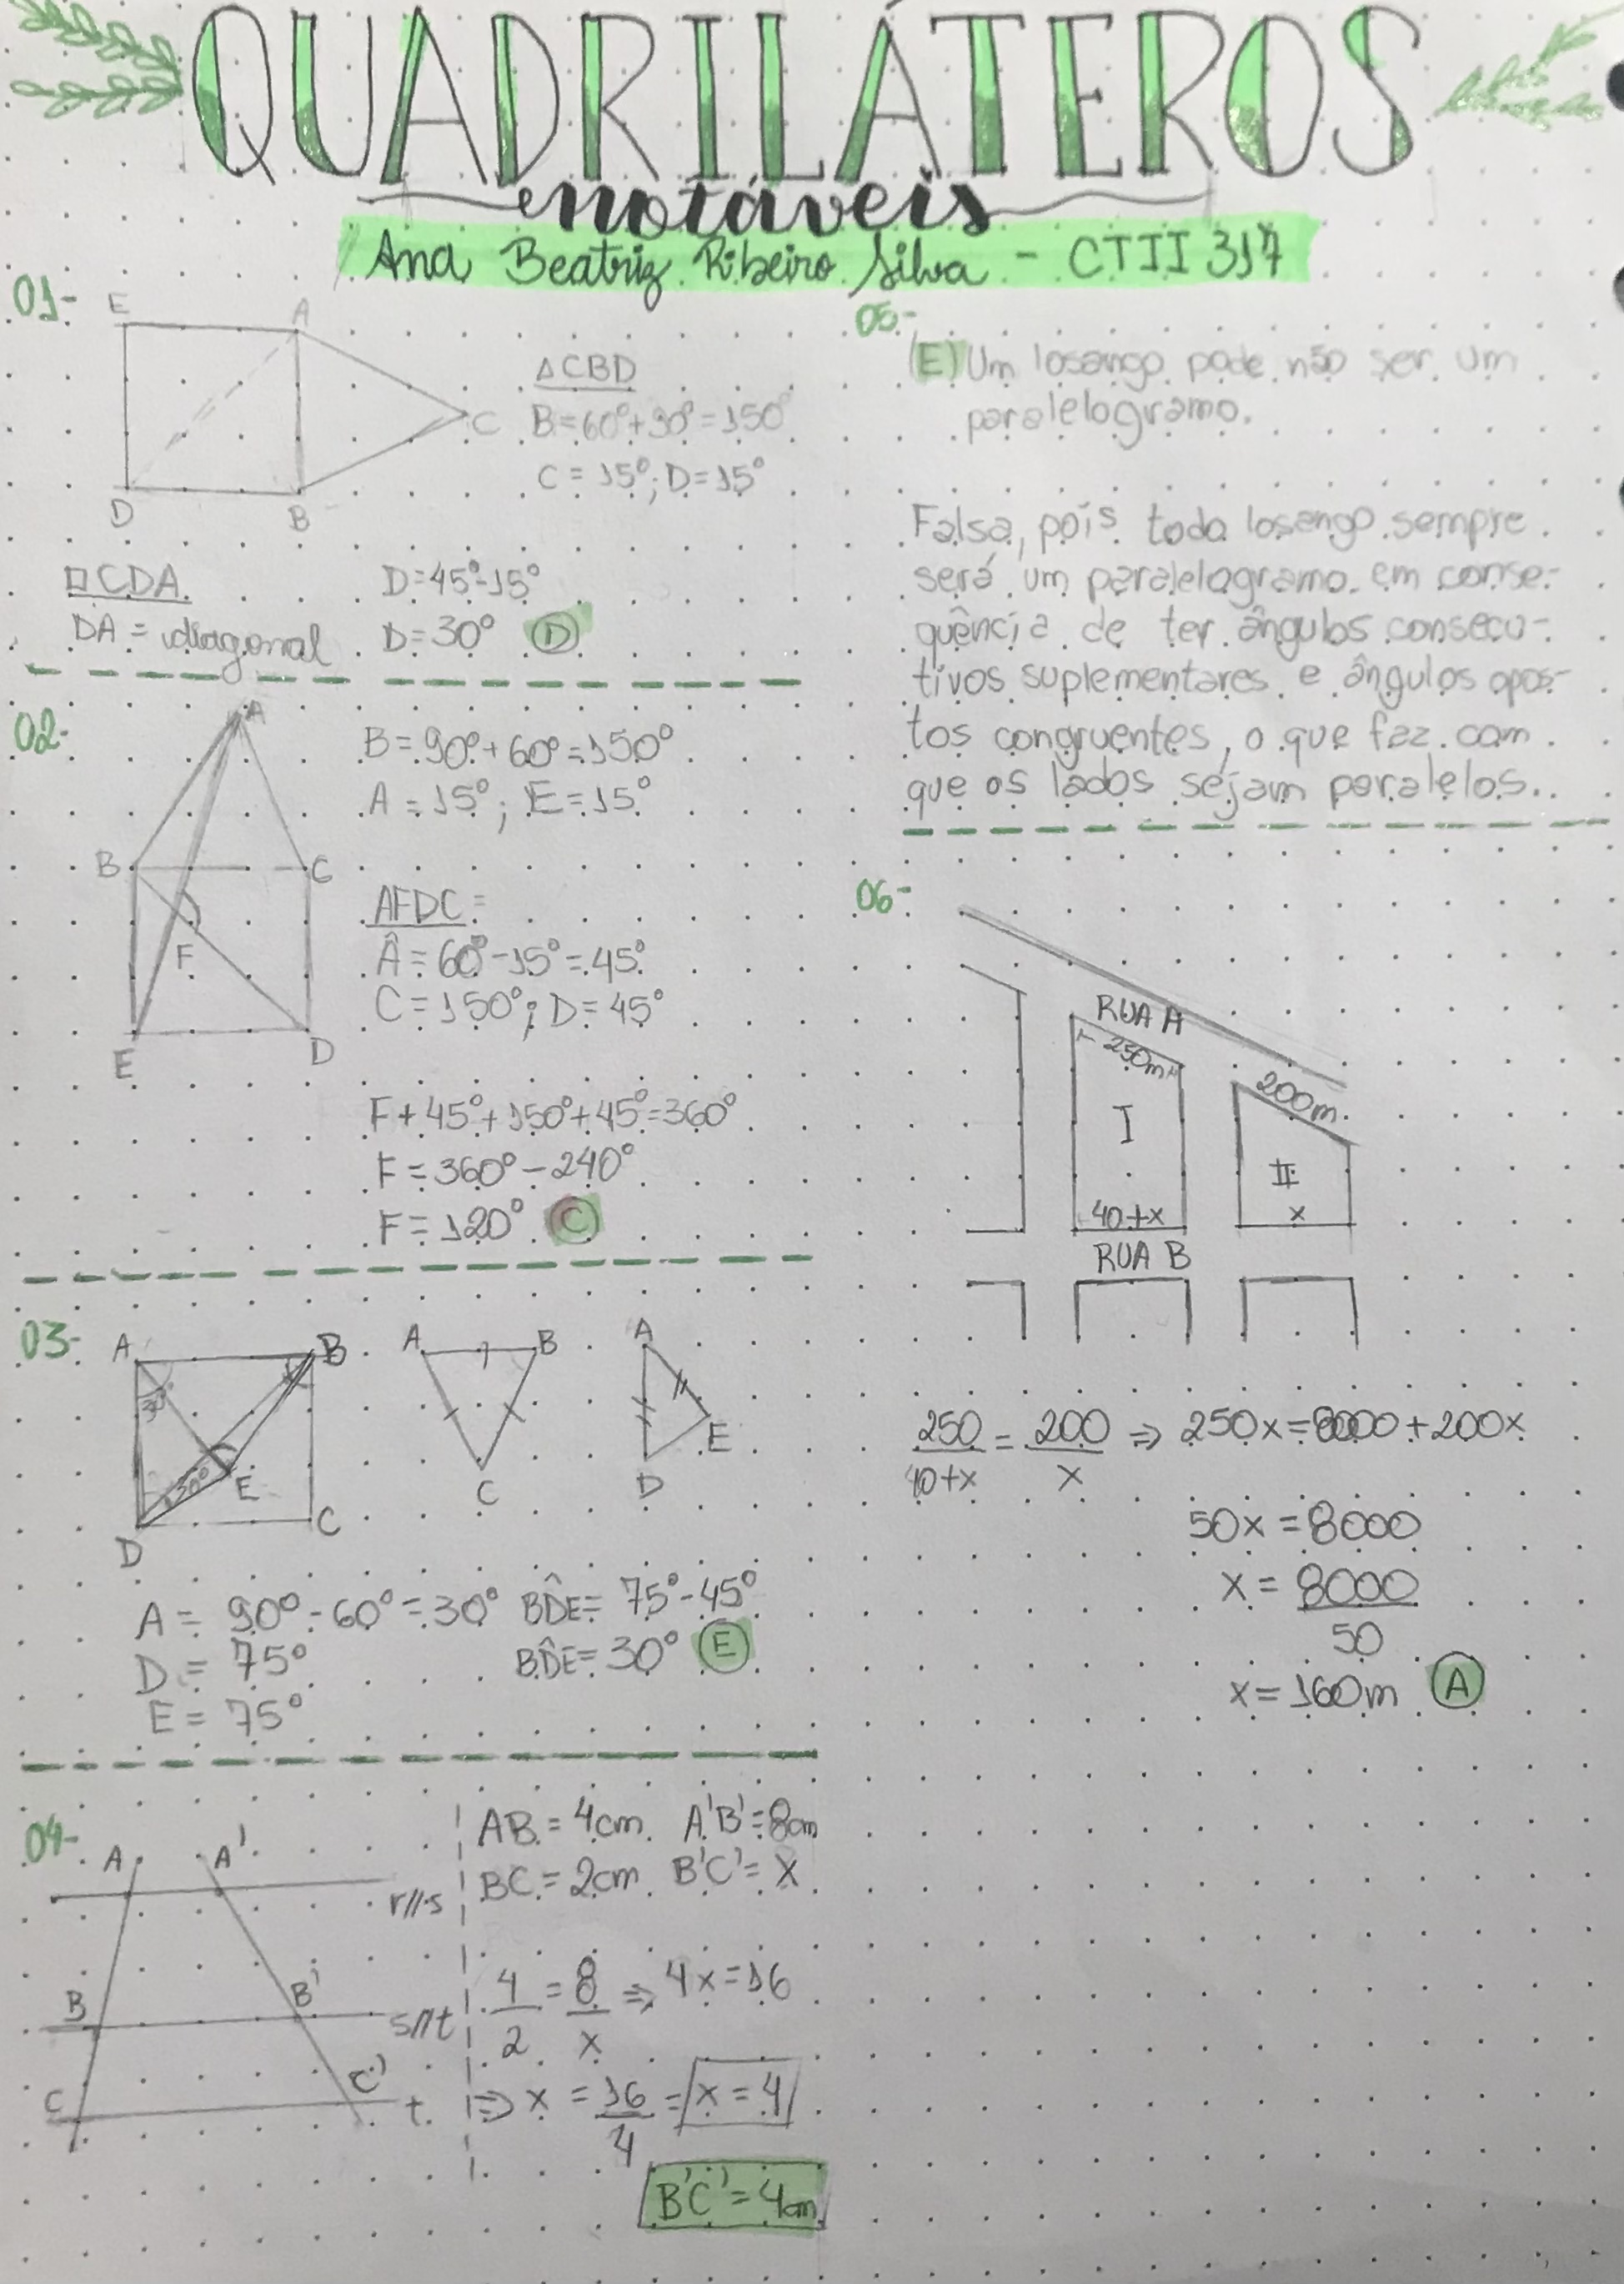 QUADRILÁTEROS
notáveis
Ana Beatriz Ribeiro Silva - CTII 317
01-
E A
C
D B
△CBD
B=60°+90°=150°
C=15°; D=15°
□CDA
DA = diagonal
D=45°-15°
D=30° (D)
02-
A
B C
F
E D
B=90°+60°=150°
A=15°; E=15°
AFDC=
Â=60°-15°=45°
C=150°; D=45°
F+45°+150°+45°=360°
F=360°-240°
F=120° (C)
03-
A B
30°
30° E
D C
A B
C
A
E
D
A = 90°-60°=30°
D = 75°
E = 75°
BD̂E= 75°-45°
BD̂E= 30° (E)
04-
A A'
r//s
B B'
s//t
C C'
t
AB = 4cm A'B'=8cm
BC = 2cm B'C'= X
4/2 = 8/x ⇒ 4x=16
⇒ x = 16/4 = x = 4
B'C' = 4cm
05-
(E) Um losango pode não ser um
paralelogramo.
Falsa, pois todo losango sempre
será um paralelogramo em conse-
quência de ter ângulos consecu-
tivos suplementares e ângulos opos-
tos congruentes, o que faz com
que os lados sejam paralelos.
06-
RUA A
250m
200m
I
II
40+x
x
RUA B
250/40+x = 200/x ⇒ 250x=8000+200x
50x=8000
x = 8000/50
x=160m (A)